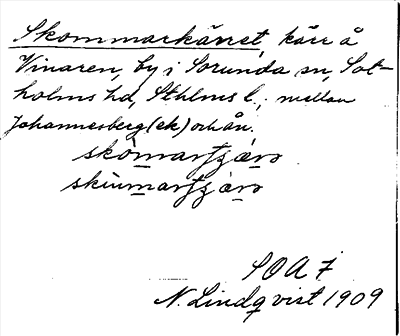 Skommarkärret, kärr å
Vinaren, by i Sorunda sn, Sot-
holms hd, Sthlms l.; mellan
Johannesberg (ek) och ån.
SOA 7
N. Lindqvist 1909